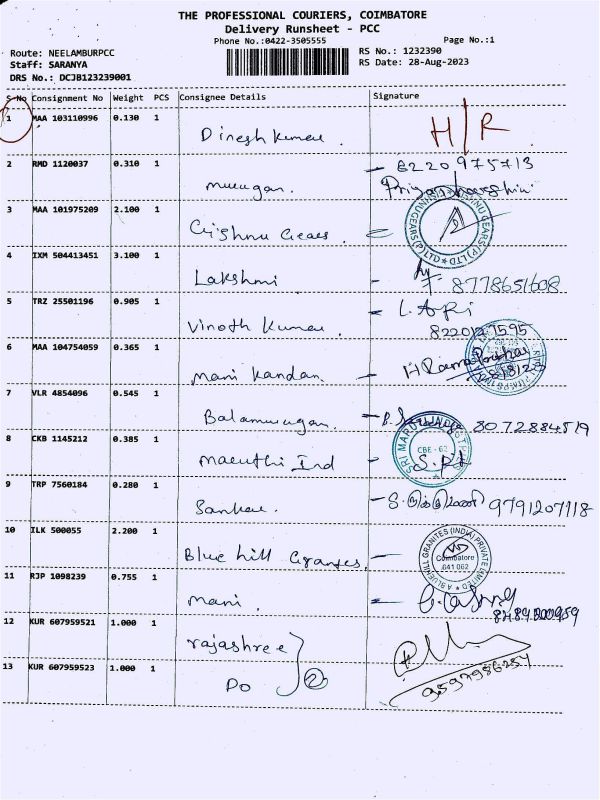 THE PROFESSIONAL COURIERS, COIMBATORE
Delivery Runsheet - PCC
Phone No.:0422-3505555 Page No.:1
Route: NEELAMBURPCC RS No.: 1232390
Staff: SARANYA RS Date: 28-Aug-2023
DRS No.: DCJB123239001
S.No Consignment No Weight PCS Consignee Details Signature
1 MAA 103110996 0.130 1 Dinesh Kumar. H/R
2 RMD 1120037 0.310 1 murugan. 6220975713
3 MAA 101975209 2.100 1 Gears.
4 IXM 504413451 3.100 1 Lakshmi 8778651608
5 TRZ 25501196 0.905 1 Vinoth Kumar.
6 MAA 104754059 0.365 1 Mani Kandan
7 VLR 4854096 0.545 1 Balamurugan. 8072884519
8 CKB 1145212 0.385 1 Maruthi Ind CBE - 62
9 TRP 7560184 0.280 1 Sankar 9791207118
10 ILK 500055 2.200 1 Blue hill Coimbatore 641 062
11 RJP 1098239 0.755 1 mani.
12 KUR 607959521 1.000 1 rajashree
13 KUR 607959523 1.000 1 Do 2 9597986254